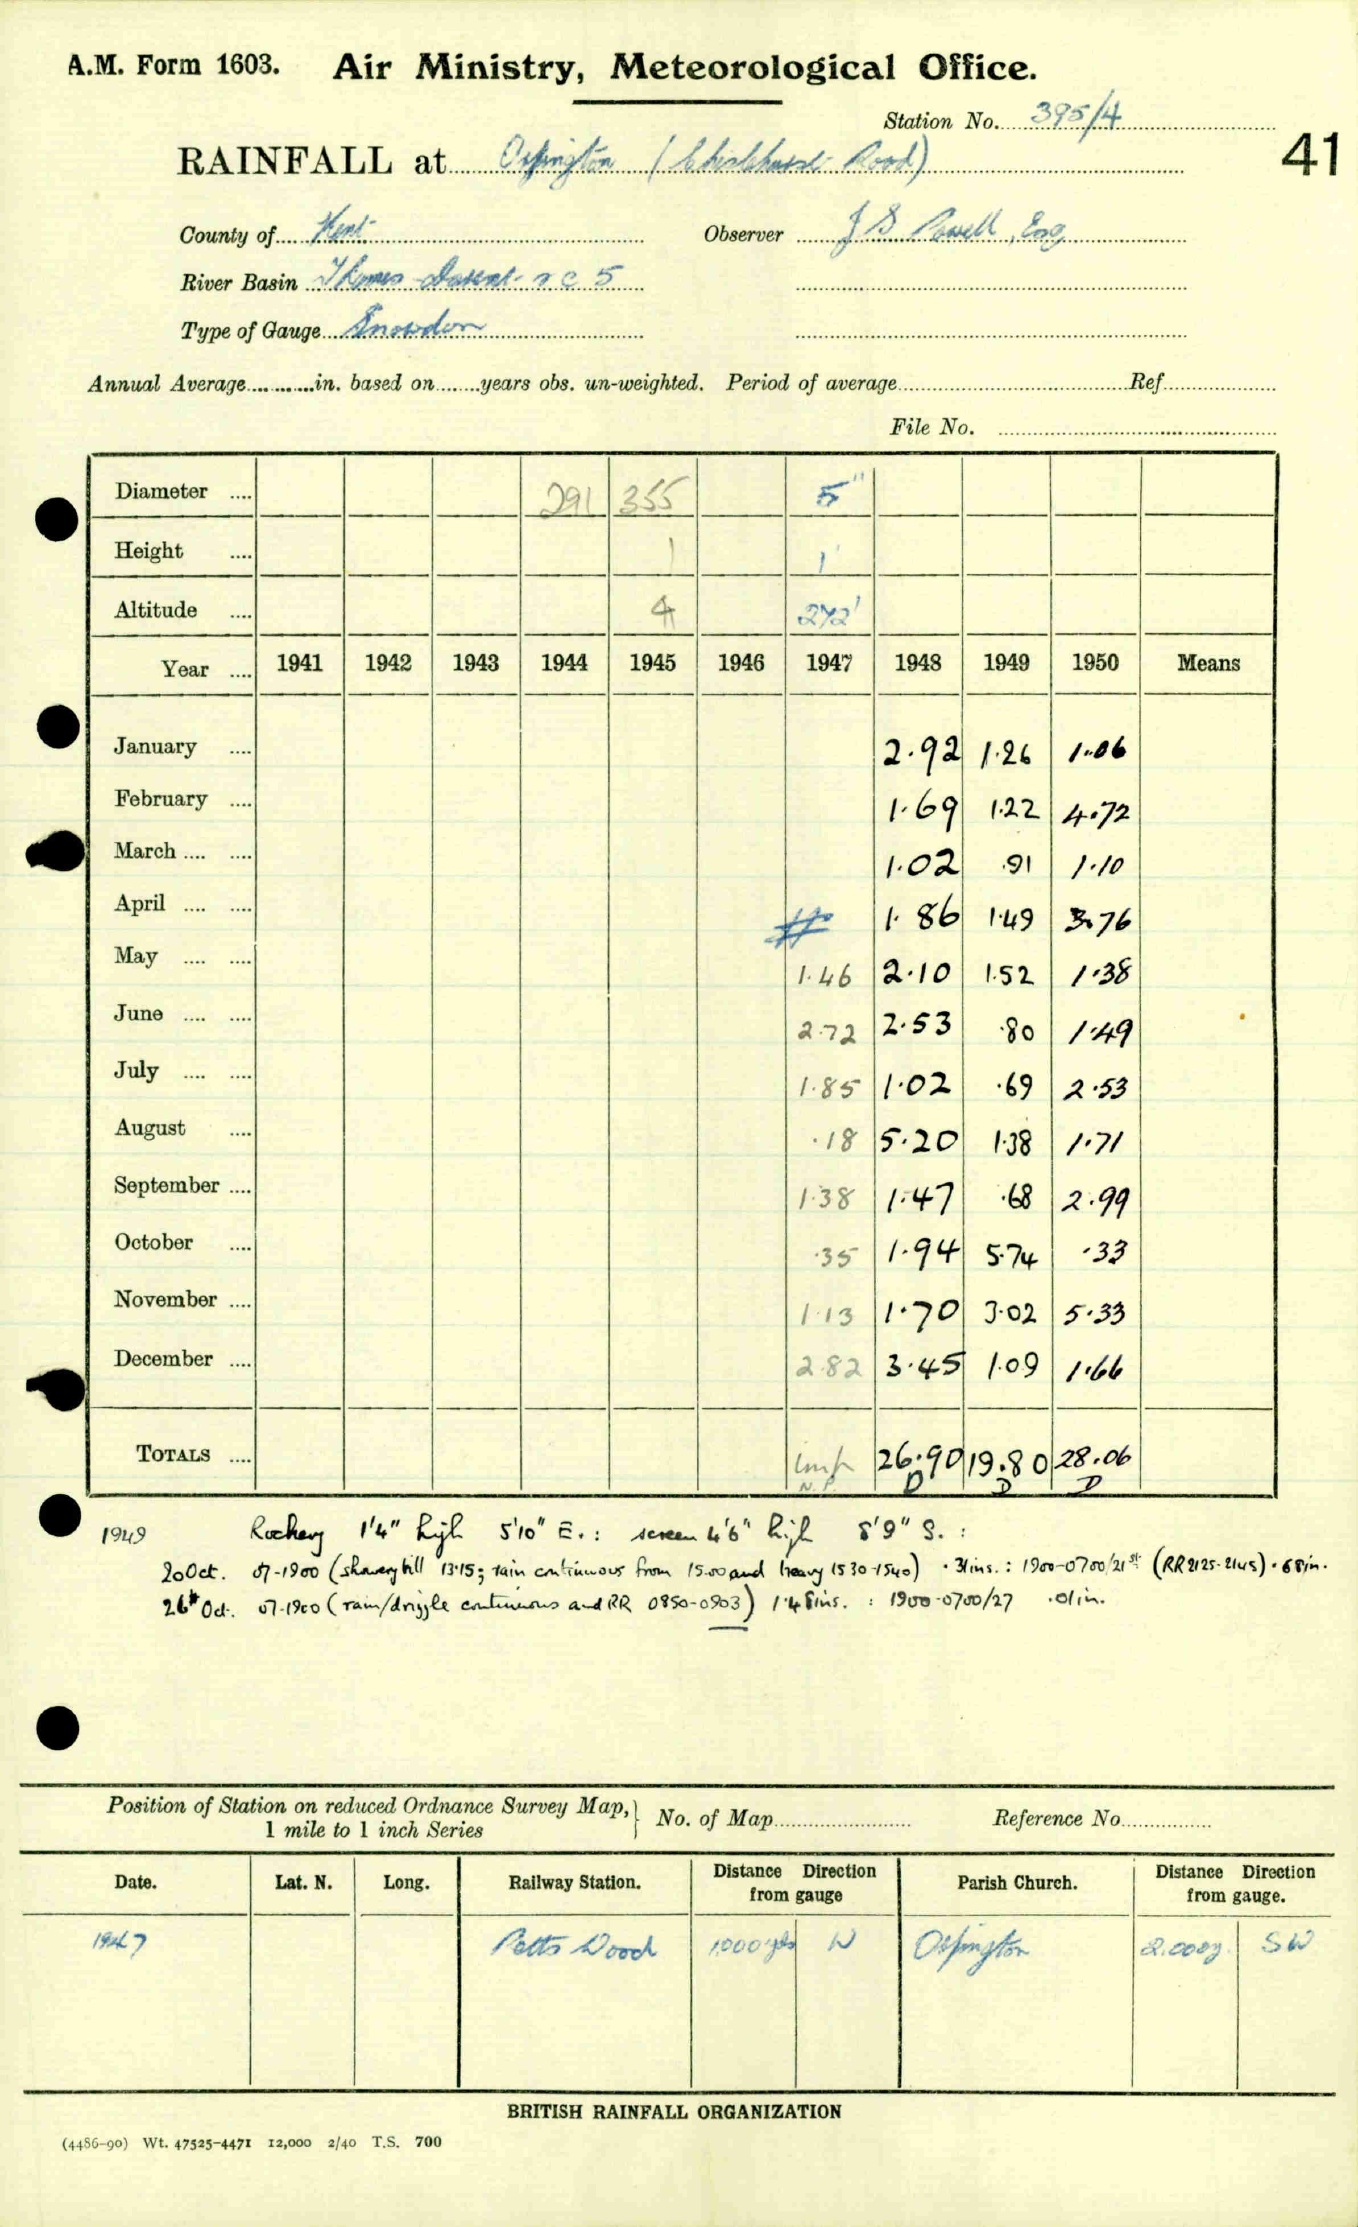 A.M. Form 1603. Air Ministry, Meteorological Office.
Station No. 395/4
41
RAINFALL at Orpington (Chislehurst Road)
County of Kent Observer J S Powell, Esq
River Basin Thames Darent r c 5
Type of Gauge Snowdon
Annual Average in. based on years obs. un-weighted. Period of average Ref
File No.
Diameter 291 355 5"
Height 1 1'
Altitude 4 272'
Year 1941 1942 1943 1944 1945 1946 1947 1948 1949 1950 Means
January 2.92 1.26 1.06
February 1.69 1.22 4.72
March 1.02 .91 1.10
April 1.86 1.49 3.76
May 1.46 2.10 1.52 1.38
June 2.72 2.53 .80 1.49
July 1.85 1.02 .69 2.53
August .18 5.20 1.38 1.71
September 1.38 1.47 .68 2.99
October .35 1.94 5.74 .33
November 1.13 1.70 3.02 5.33
December 2.82 3.45 1.09 1.66
TOTALS imp 26.90 19.80 28.06
N.P. D D D
1949 Rockery 1'4" high 5'10" E. : screen 4'6" high 8'9" S. :
20 Oct. 07-1900 (showery till 1315; rain continuous from 1500 and heavy 1530-1540) .31ins. : 1900-0700/21st (RR 2125-2145) .68in.
26th Oct. 07-1900 (rain/drizzle continuous and RR 0850-0903) 1.48ins. : 1900-0700/27 .01in.
Position of Station on reduced Ordnance Survey Map, 1 mile to 1 inch Series No. of Map Reference No
Date. Lat. N. Long. Railway Station. Distance Direction from gauge Parish Church. Distance Direction from gauge.
1947 Petts Wood 1000 yds W Orpington 2,000y. SW
BRITISH RAINFALL ORGANIZATION
(4486-90) Wt. 47525-4471 12,000 2/40 T.S. 700